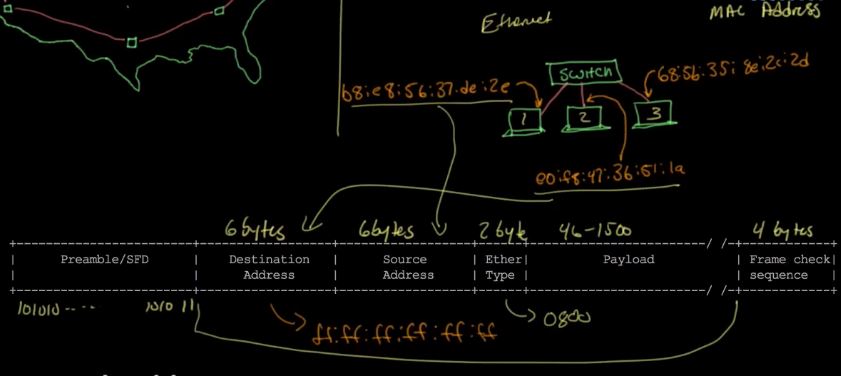 Ethernet
MAC Address
switch
68:5b:35:8e:2c:2d
b8:e8:56:37:de:2e
1
2
3
e0:f8:47:36:61:1a
6 bytes
6 bytes
2 byte
46-1500
4 bytes
Preamble/SFD
Destination
Address
Source
Address
Ether
Type
Payload
Frame check
sequence
101010 ....
1010 11
0800
ff:ff:ff:ff:ff:ff